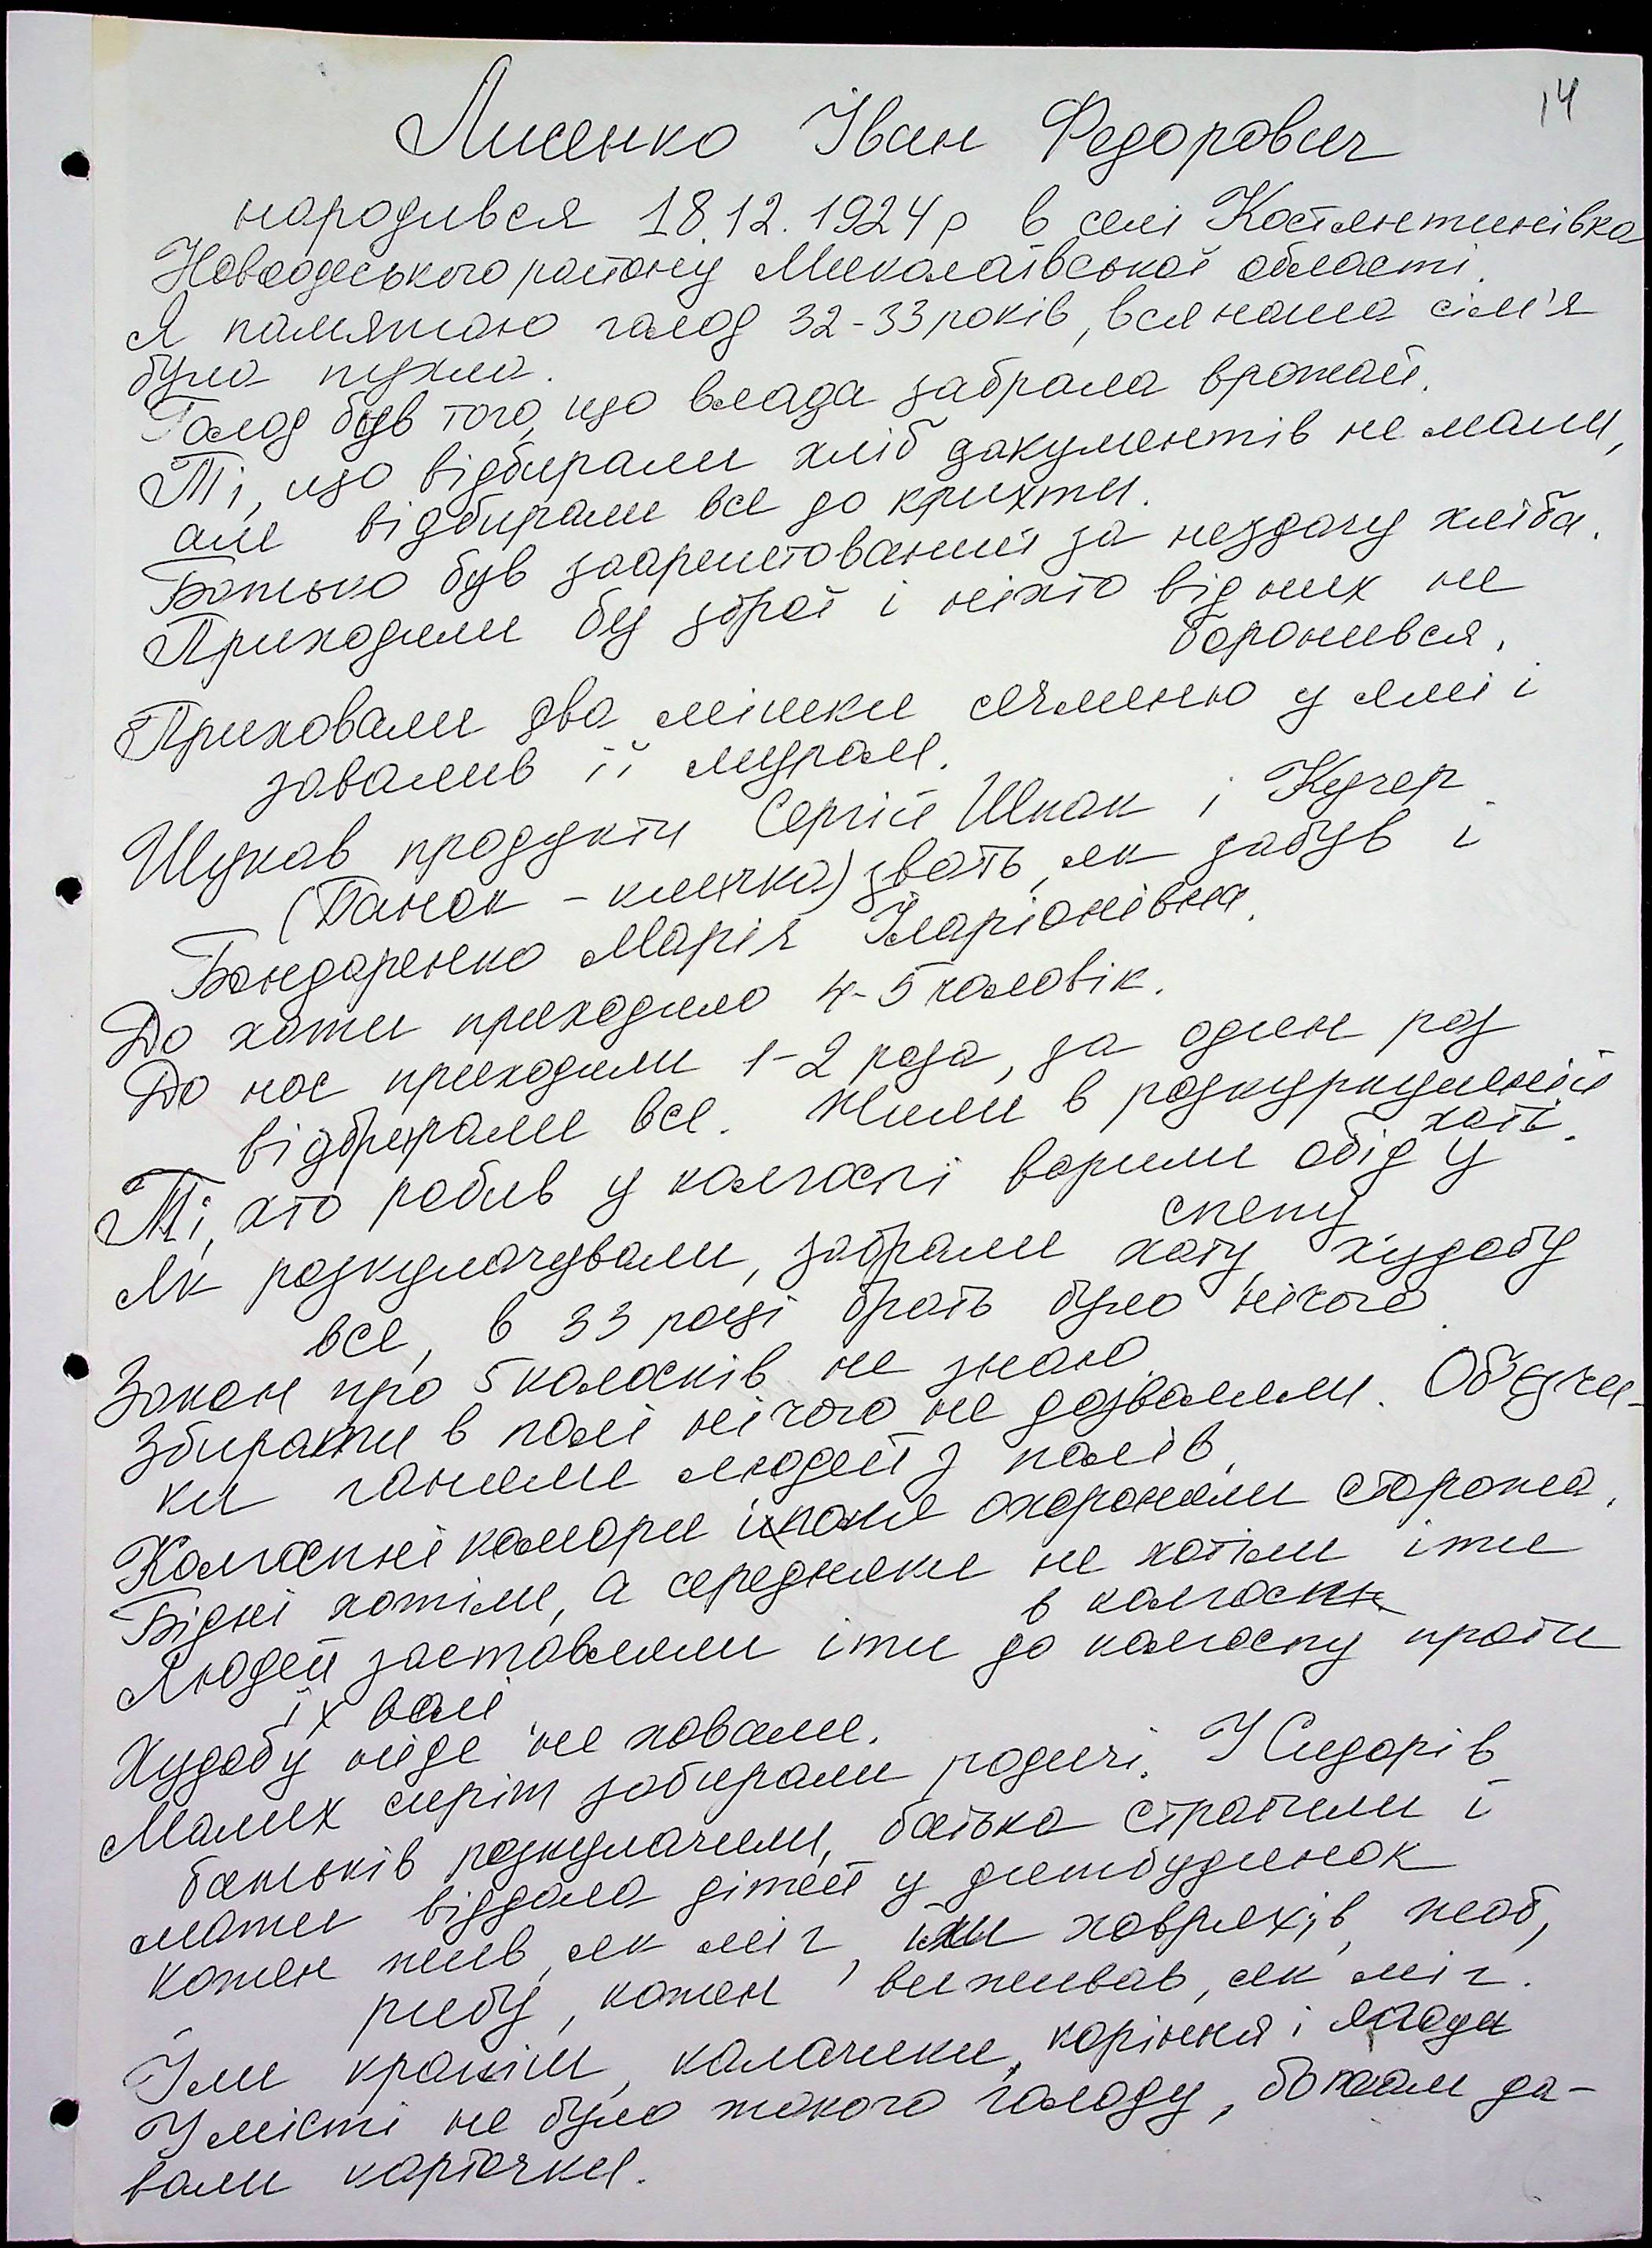 14
Лисенко Іван Федорович
народився 18.12.1924р в селі Костянтинівка
Новоодеського району Миколаївської області.
Я памятаю голод 32-33 років, вся наша сім'я
була пухла.
Голод був того, що влада забрала врожай.
Ті, що відбирали хліб документів не мали,
але відбирали все до крихти.
Батько був заарештований за нездачу хліба.
Приходили без зброї і ніхто від них не
боронився.
Приховали два мішки ячменю у ямі і
завалив її муром.
Шукав продукти Сергій Шпак і Кучер
(Панок - кличка) звать, як забув і
Бондаренко Марія Іларіонівна.
До хати приходило 4-5 чоловік.
До нас приходили 1-2 раза, за один раз
відбирали все. Жили в розкуркуленій
хаті.
Ті, хто робив у колгоспі варили обід у
степу
Як розкулачували, забрали хату, худобу
все, в 33 році брать було нічого.
Закон про 5 колосків не знаю.
Збирати в полі нічого не дозволяли. Об'єзчи-
ки ганяли людей з полів.
Колгоспні комори і поле охороняли сторожа.
Бідні хотіли, а середняки не хотіли іти
в колгосп
Людей заставляли іти до колгоспу проти
їх волі
Худобу ніде не ховали.
Малих сиріт забирали родичі. У Сидорів
батьків розкулачили, батька стратили і
мати віддала дітей у дитбудинок
Кожен жив, як міг, їли ховрахів, жаб,
рибу, кожен виживав, як міг.
Їли кропиви, калачики, коріння і ягоди
У місті не було такого голоду, бо там да-
вали карточки.